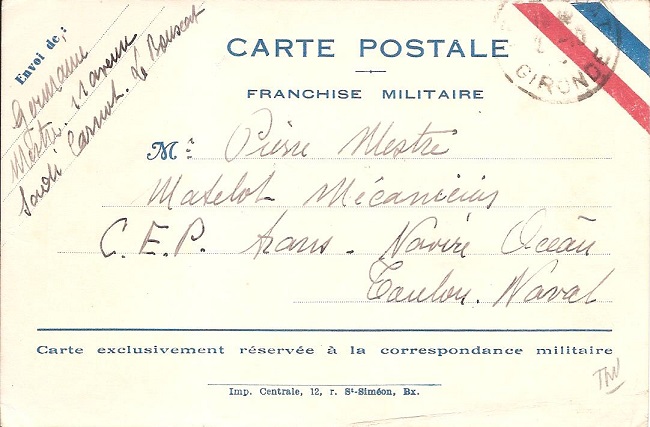 Envoi de :
Germaine
Mestre. 11 avenue
Sadi Carnot. Le Bouscat
CARTE POSTALE
FRANCHISE MILITAIRE
GIRONDE
Mr Pierre Mestre
Matelot Mécanicien
C.E.P. trans. Navire Océan
Toulon. Naval
Carte exclusivement réservée à la correspondance militaire
Imp. Centrale, 12, r. St-Siméon, Bx.